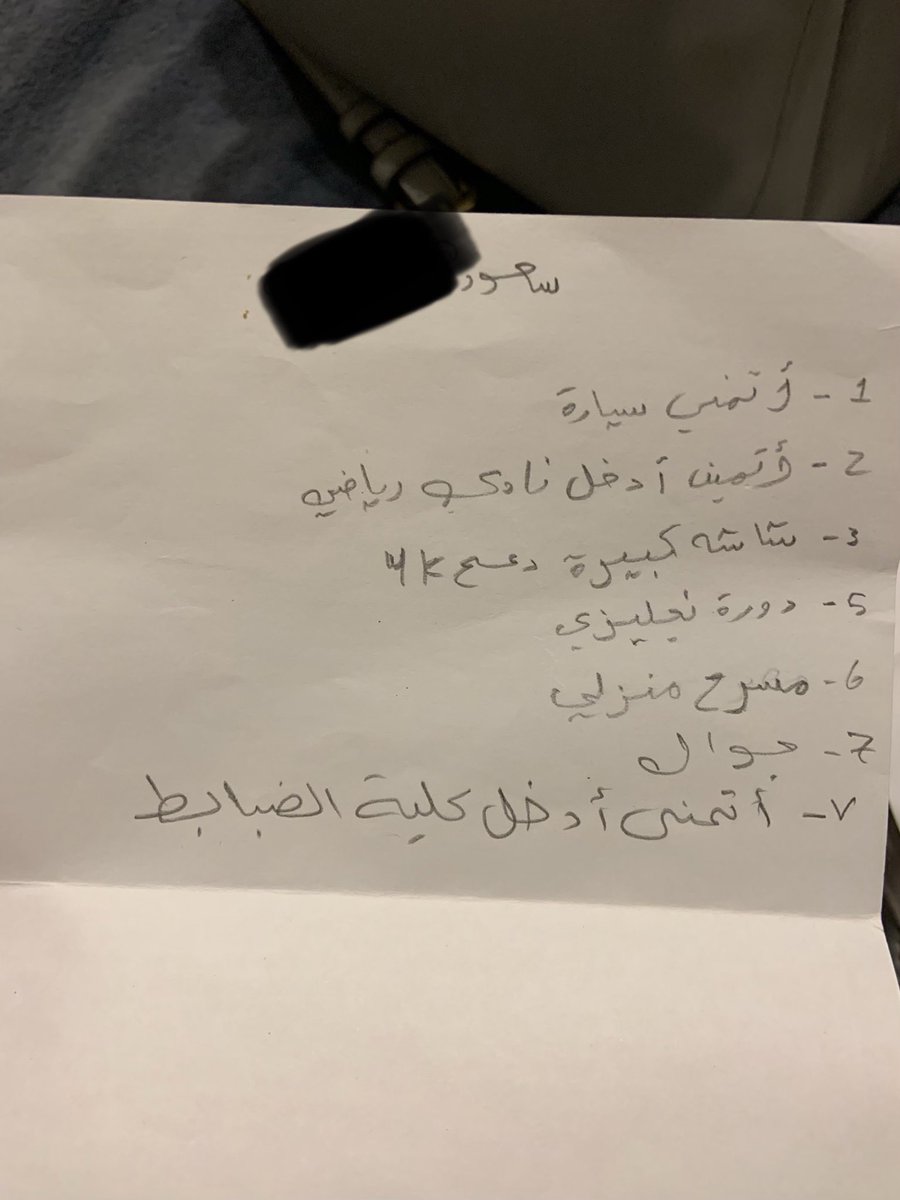 سعود
1- أتمني سيارة
2- أتمنا أدخل نادي رياضي
3- شاشه كبيرة دعم 4k
5- دورة نجليزي
6- مسرح منزلي
7- جوال
٧- أتمنى أدخل كلية الضبابط